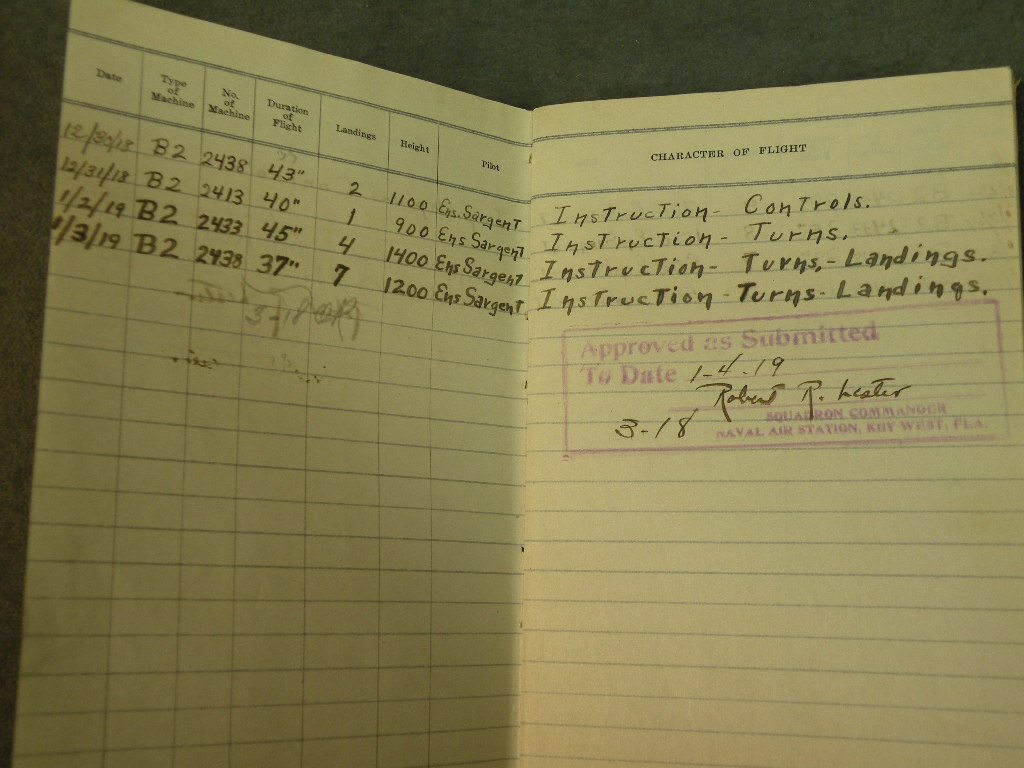 Date Type of Machine No. of Machine Duration of Flight Landings Height Pilot CHARACTER OF FLIGHT
12/30/18 B2 2438 43" 2 1100 Ens. Sargent Instruction - Controls.
12/31/18 B2 2413 40" 1 900 Ens Sargent Instruction - Turns.
1/2/19 B2 2433 45" 4 1400 Ens Sargent Instruction - Turns, - Landings.
1/3/19 B2 2438 37" 7 1200 Ens Sargent Instruction - Turns - Landings.
Approved as Submitted
To Date 1-4-19
Robert R. Lester
SQUADRON COMMANDER
3-18 NAVAL AIR STATION, KEY WEST, FLA.